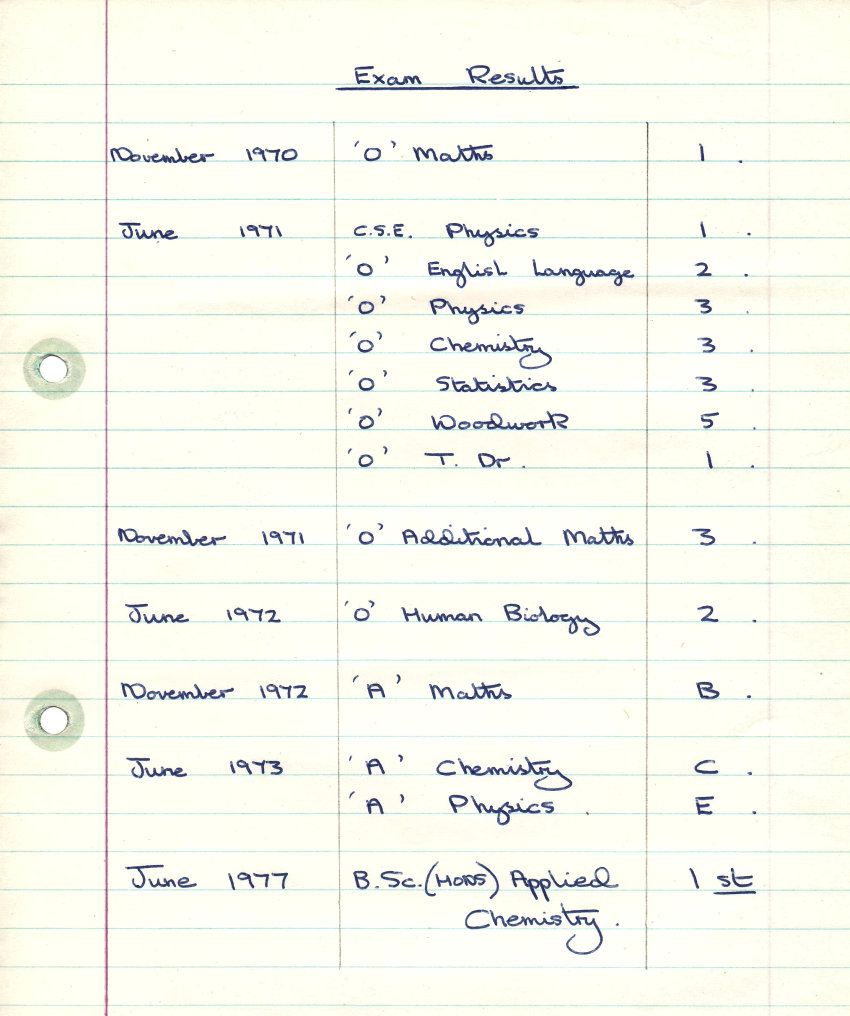 Exam Results
November 1970 'O' Maths 1 .
June 1971 C.S.E. Physics 1 .
'O' English Language 2 .
'O' Physics 3 .
'O' Chemistry 3 .
'O' Statistics 3 .
'O' Woodwork 5 .
'O' T. Dr. 1 .
November 1971 'O' Additional Maths 3 .
June 1972 'O' Human Biology 2 .
November 1972 'A' Maths B .
June 1973 'A' Chemistry C .
'A' Physics . E .
June 1977 B.Sc. (HONS) Applied 1 st
Chemistry.